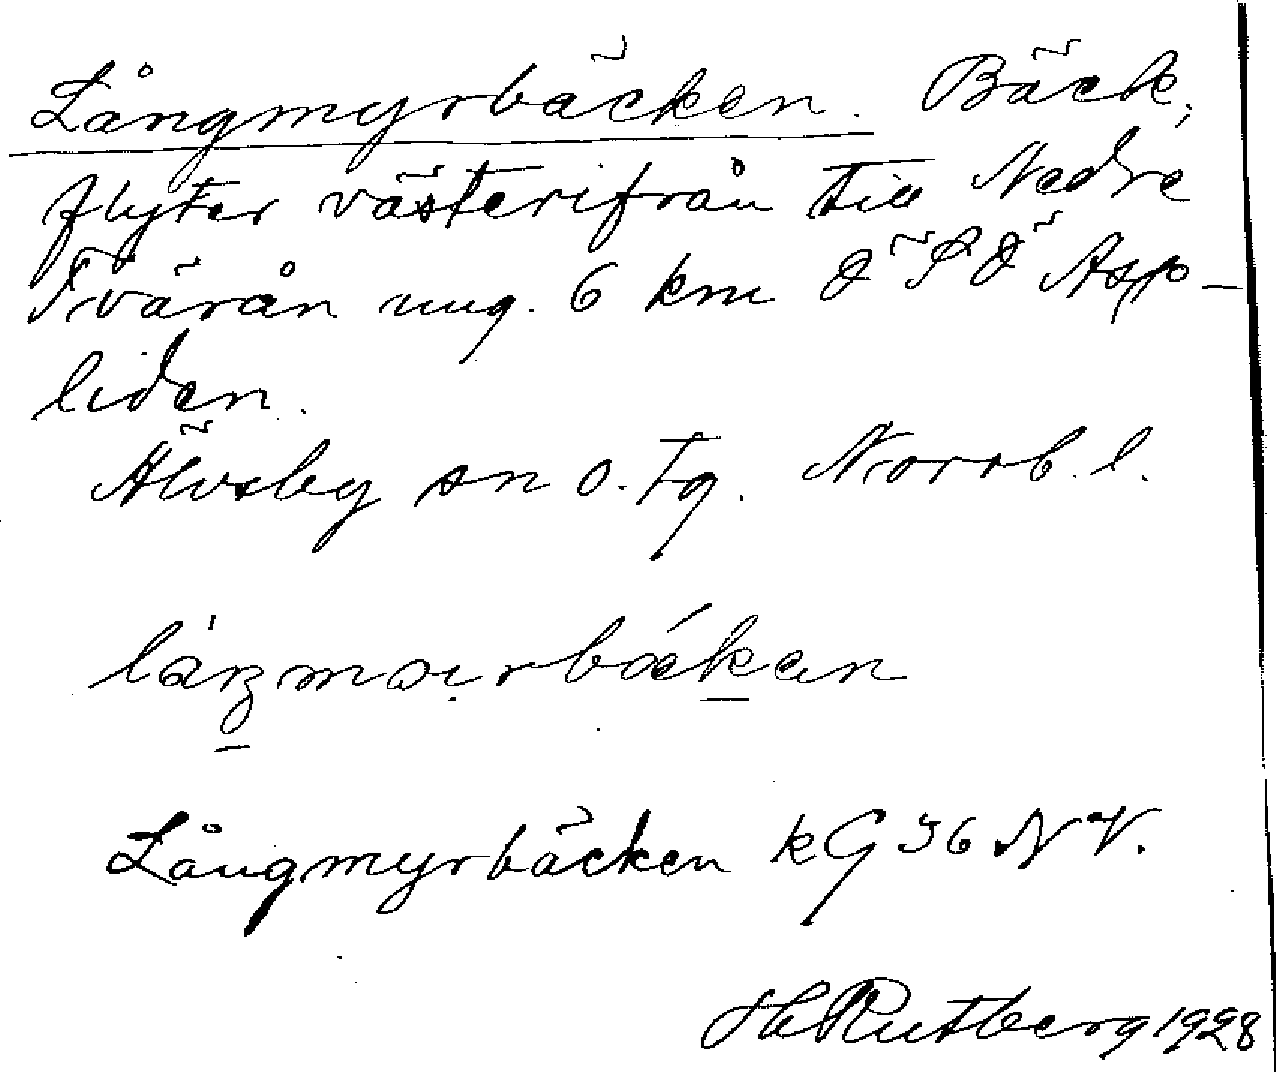 Långmyrbäcken. Bäck,
flyter västerifrån till Nedre
Tvärån ung. 6 km ÖSÖ Asp-
liden.
Älvsby sn o. tg. Norrb. l.
Långmyrbäcken kG 36 NV.
H Rutberg 1928